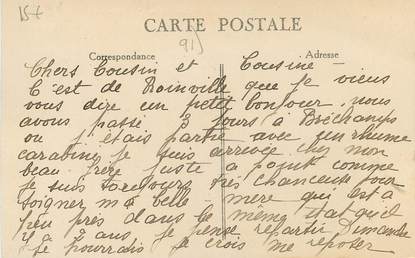 15+
CARTE POSTALE
91)
Correspondance
Adresse
Chers Cousin et Cousine
C'est de Roinville que je viens
vous dire un petit bonjour, nous
avons passé 3 jours à Bréchamps
ou j'étais partie avec un rhume
carabiné je suis arrivée chez mon
beau frère juste à point comme
je suis toujours très chanceuse pour
soigner ma belle-mère qui est à
peu près dans le même état qu'il
y a 2 ans, je pense repartir Dimanche
je pourrais je crois me reposer